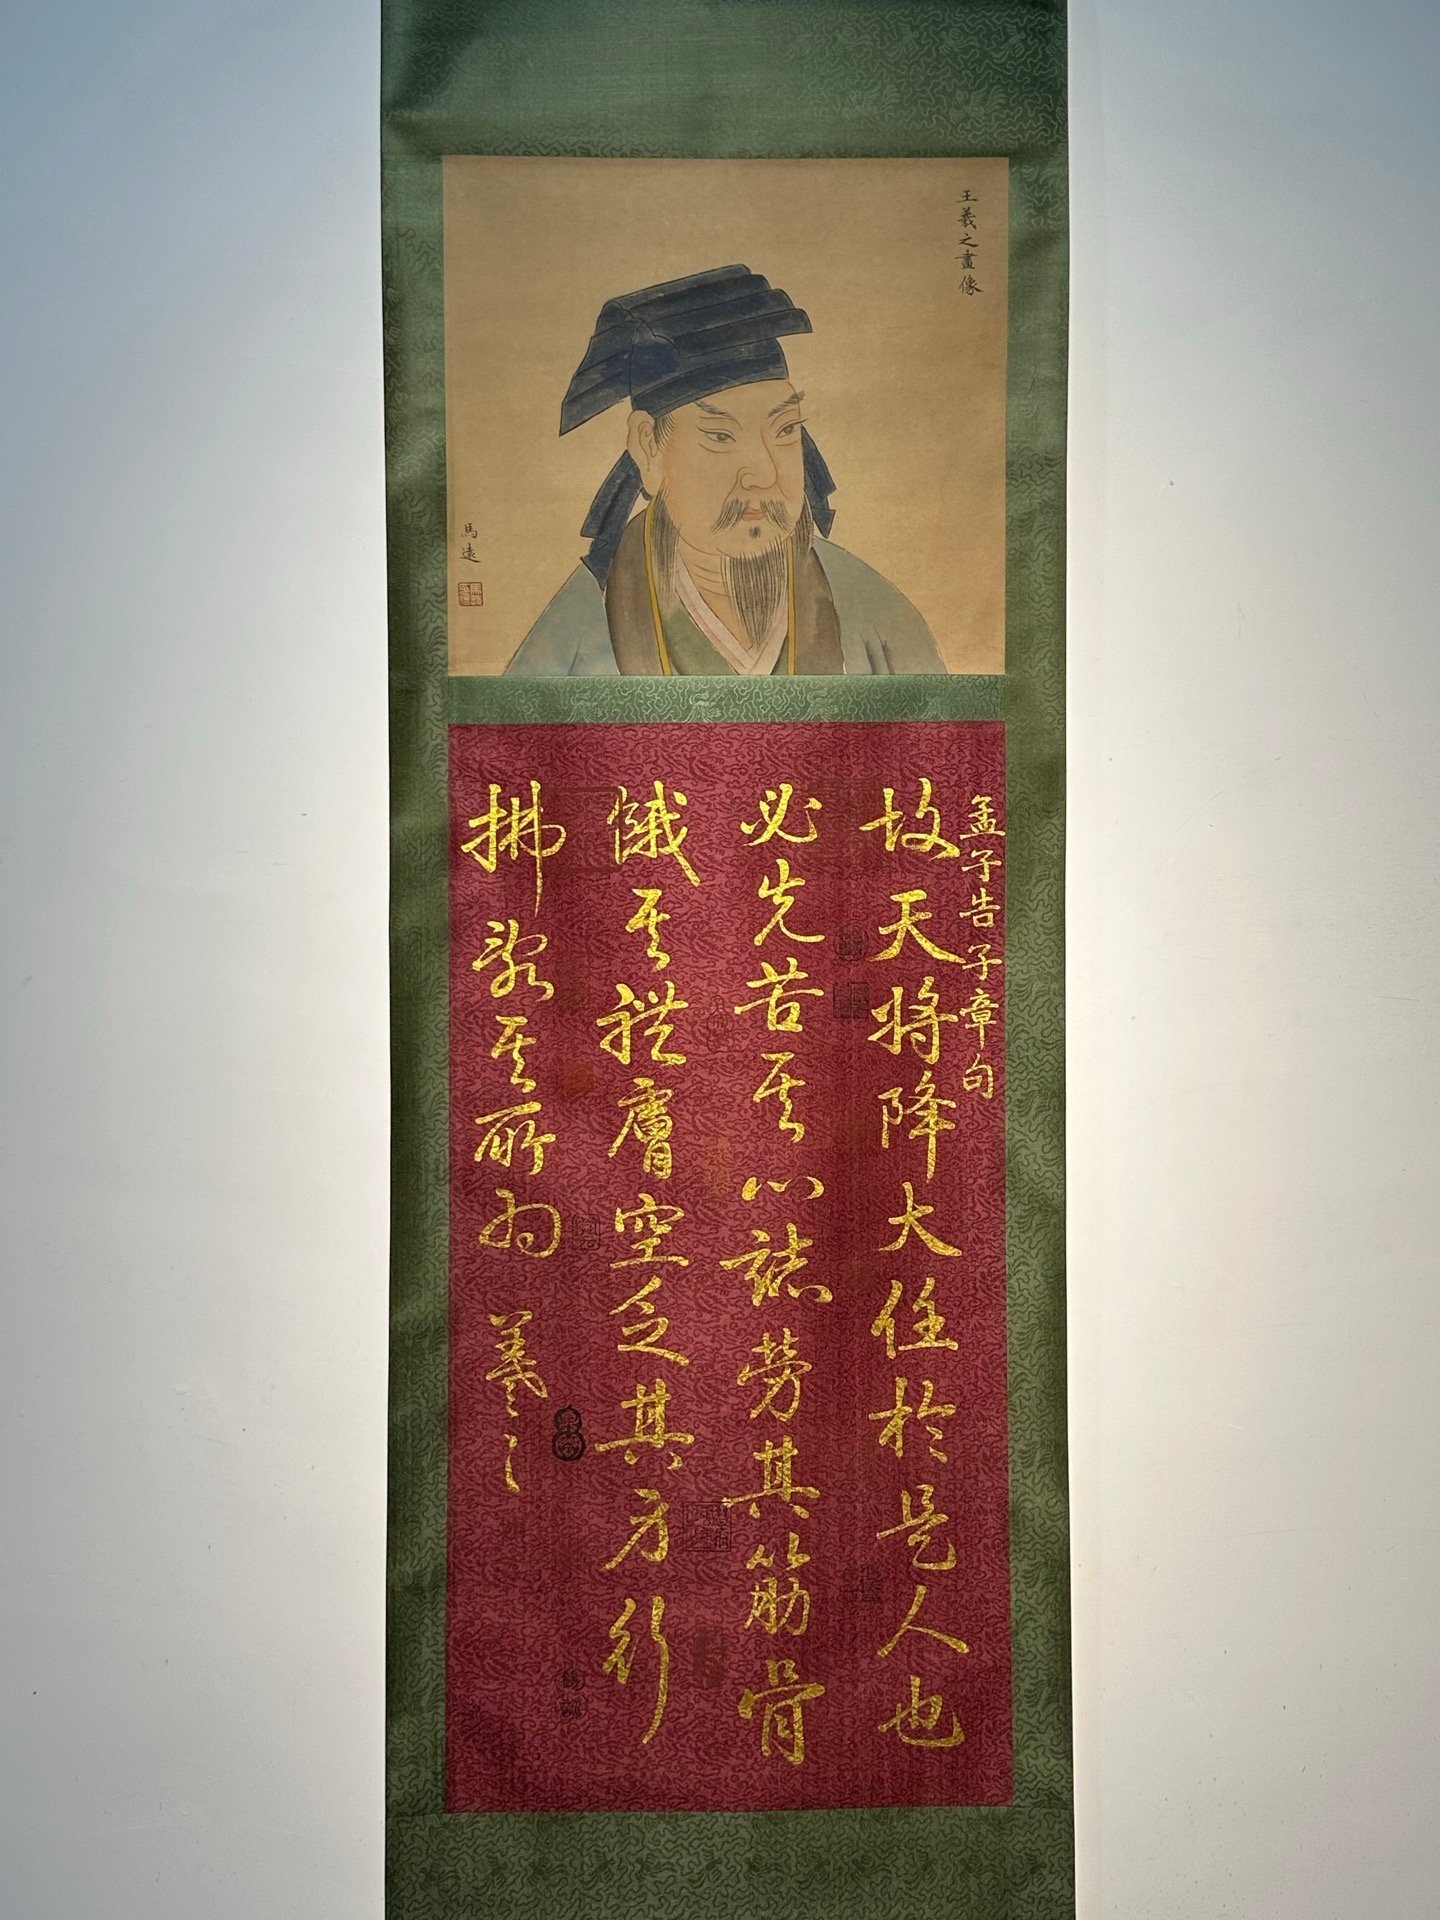 王羲之畫像
馬遠
孟子告子章句
故天将降大任於是人也
必先苦其心誌勞其筋骨
餓其體膚空乏其身行
拂亂其所為 羲之